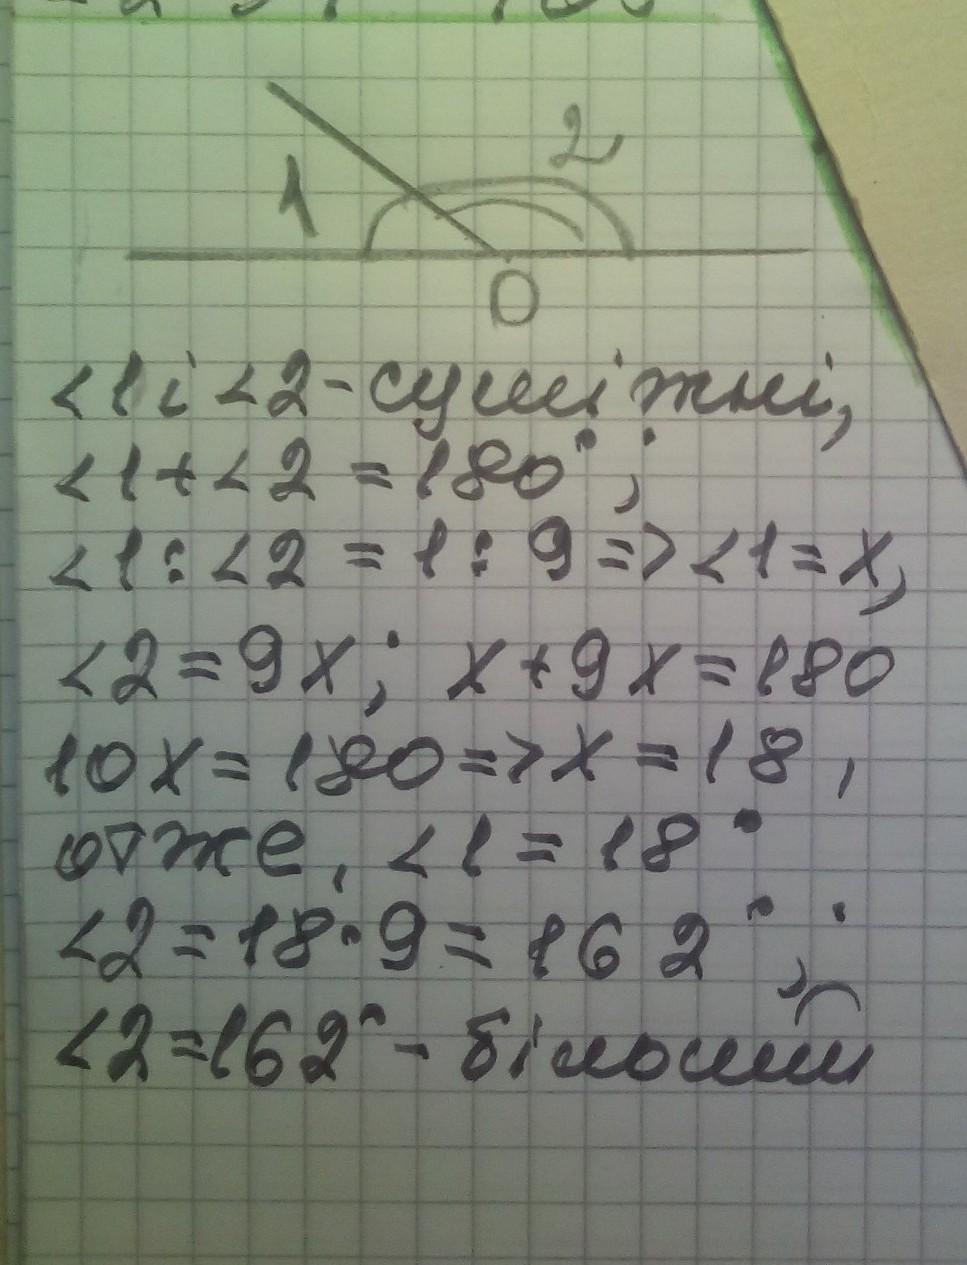 1
2
O
<1 і <2 - суміжні,
<1 + <2 = 180°;
<1 : <2 = 1 : 9 => <1 = x,
<2 = 9x; x + 9x = 180
10x = 180 => x = 18,
отже, <1 = 18°
<2 = 18 · 9 = 162°;
<2 = 162° - більший